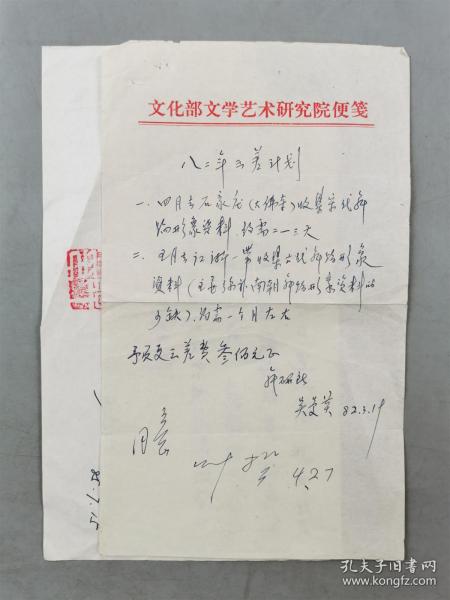 文化部文学艺术研究院便笺
八二年出差计划
一、四月去石家庄（大佛寺）收集宋代舞
蹈形象资料 约需二—三天
二、五月去江浙一带收集古代舞蹈形象
资料（主要弥补南朝舞蹈形象资料的
少缺），约需一个月左右
予支出差费叁佰元正
舞研所
吴曼英 82.3.19
同意
4.27
孔夫子旧书网
www.kongfz.com